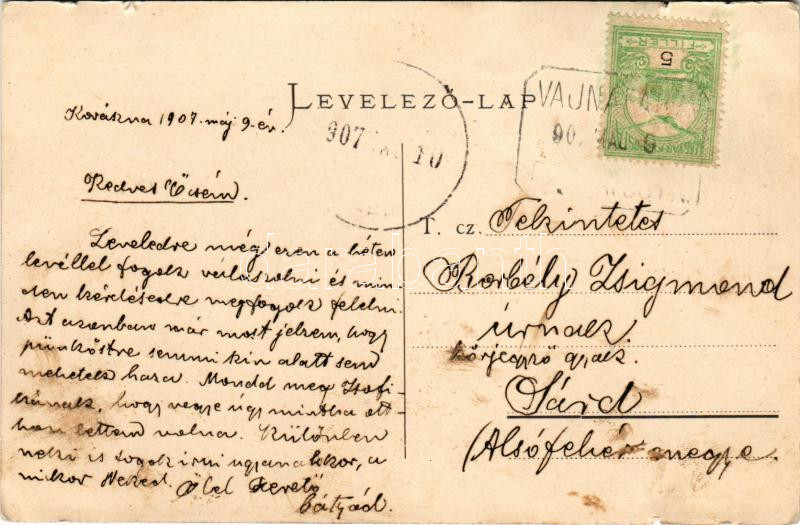 LEVELEZŐ-LAP
FILLÉR
5
VAJNA
907
10
Kovászna 1907. máj 9-én.
Kedves Öcsém.
Leveledre még ezen a héten
levéllel fogok válaszolni és min
den kérdésedre megfogok felelni.
Azt azonban már most jelzem, hogy
pünköstre semmi kin alatt sem
mehetek haza. Mondd meg Zsofi-
kának, hogy vegye úgy mintha ott-
hon lettem volna. Különben
neki is fogok irni ugyanakkor, a
mikor Neked. Ölel szerető
bátyád.
T. cz. Tekintetes
Borbély Zsigmond
úrnak.
körjegyző gyak.
Sárd
(Alsófehér megye.
darabanth